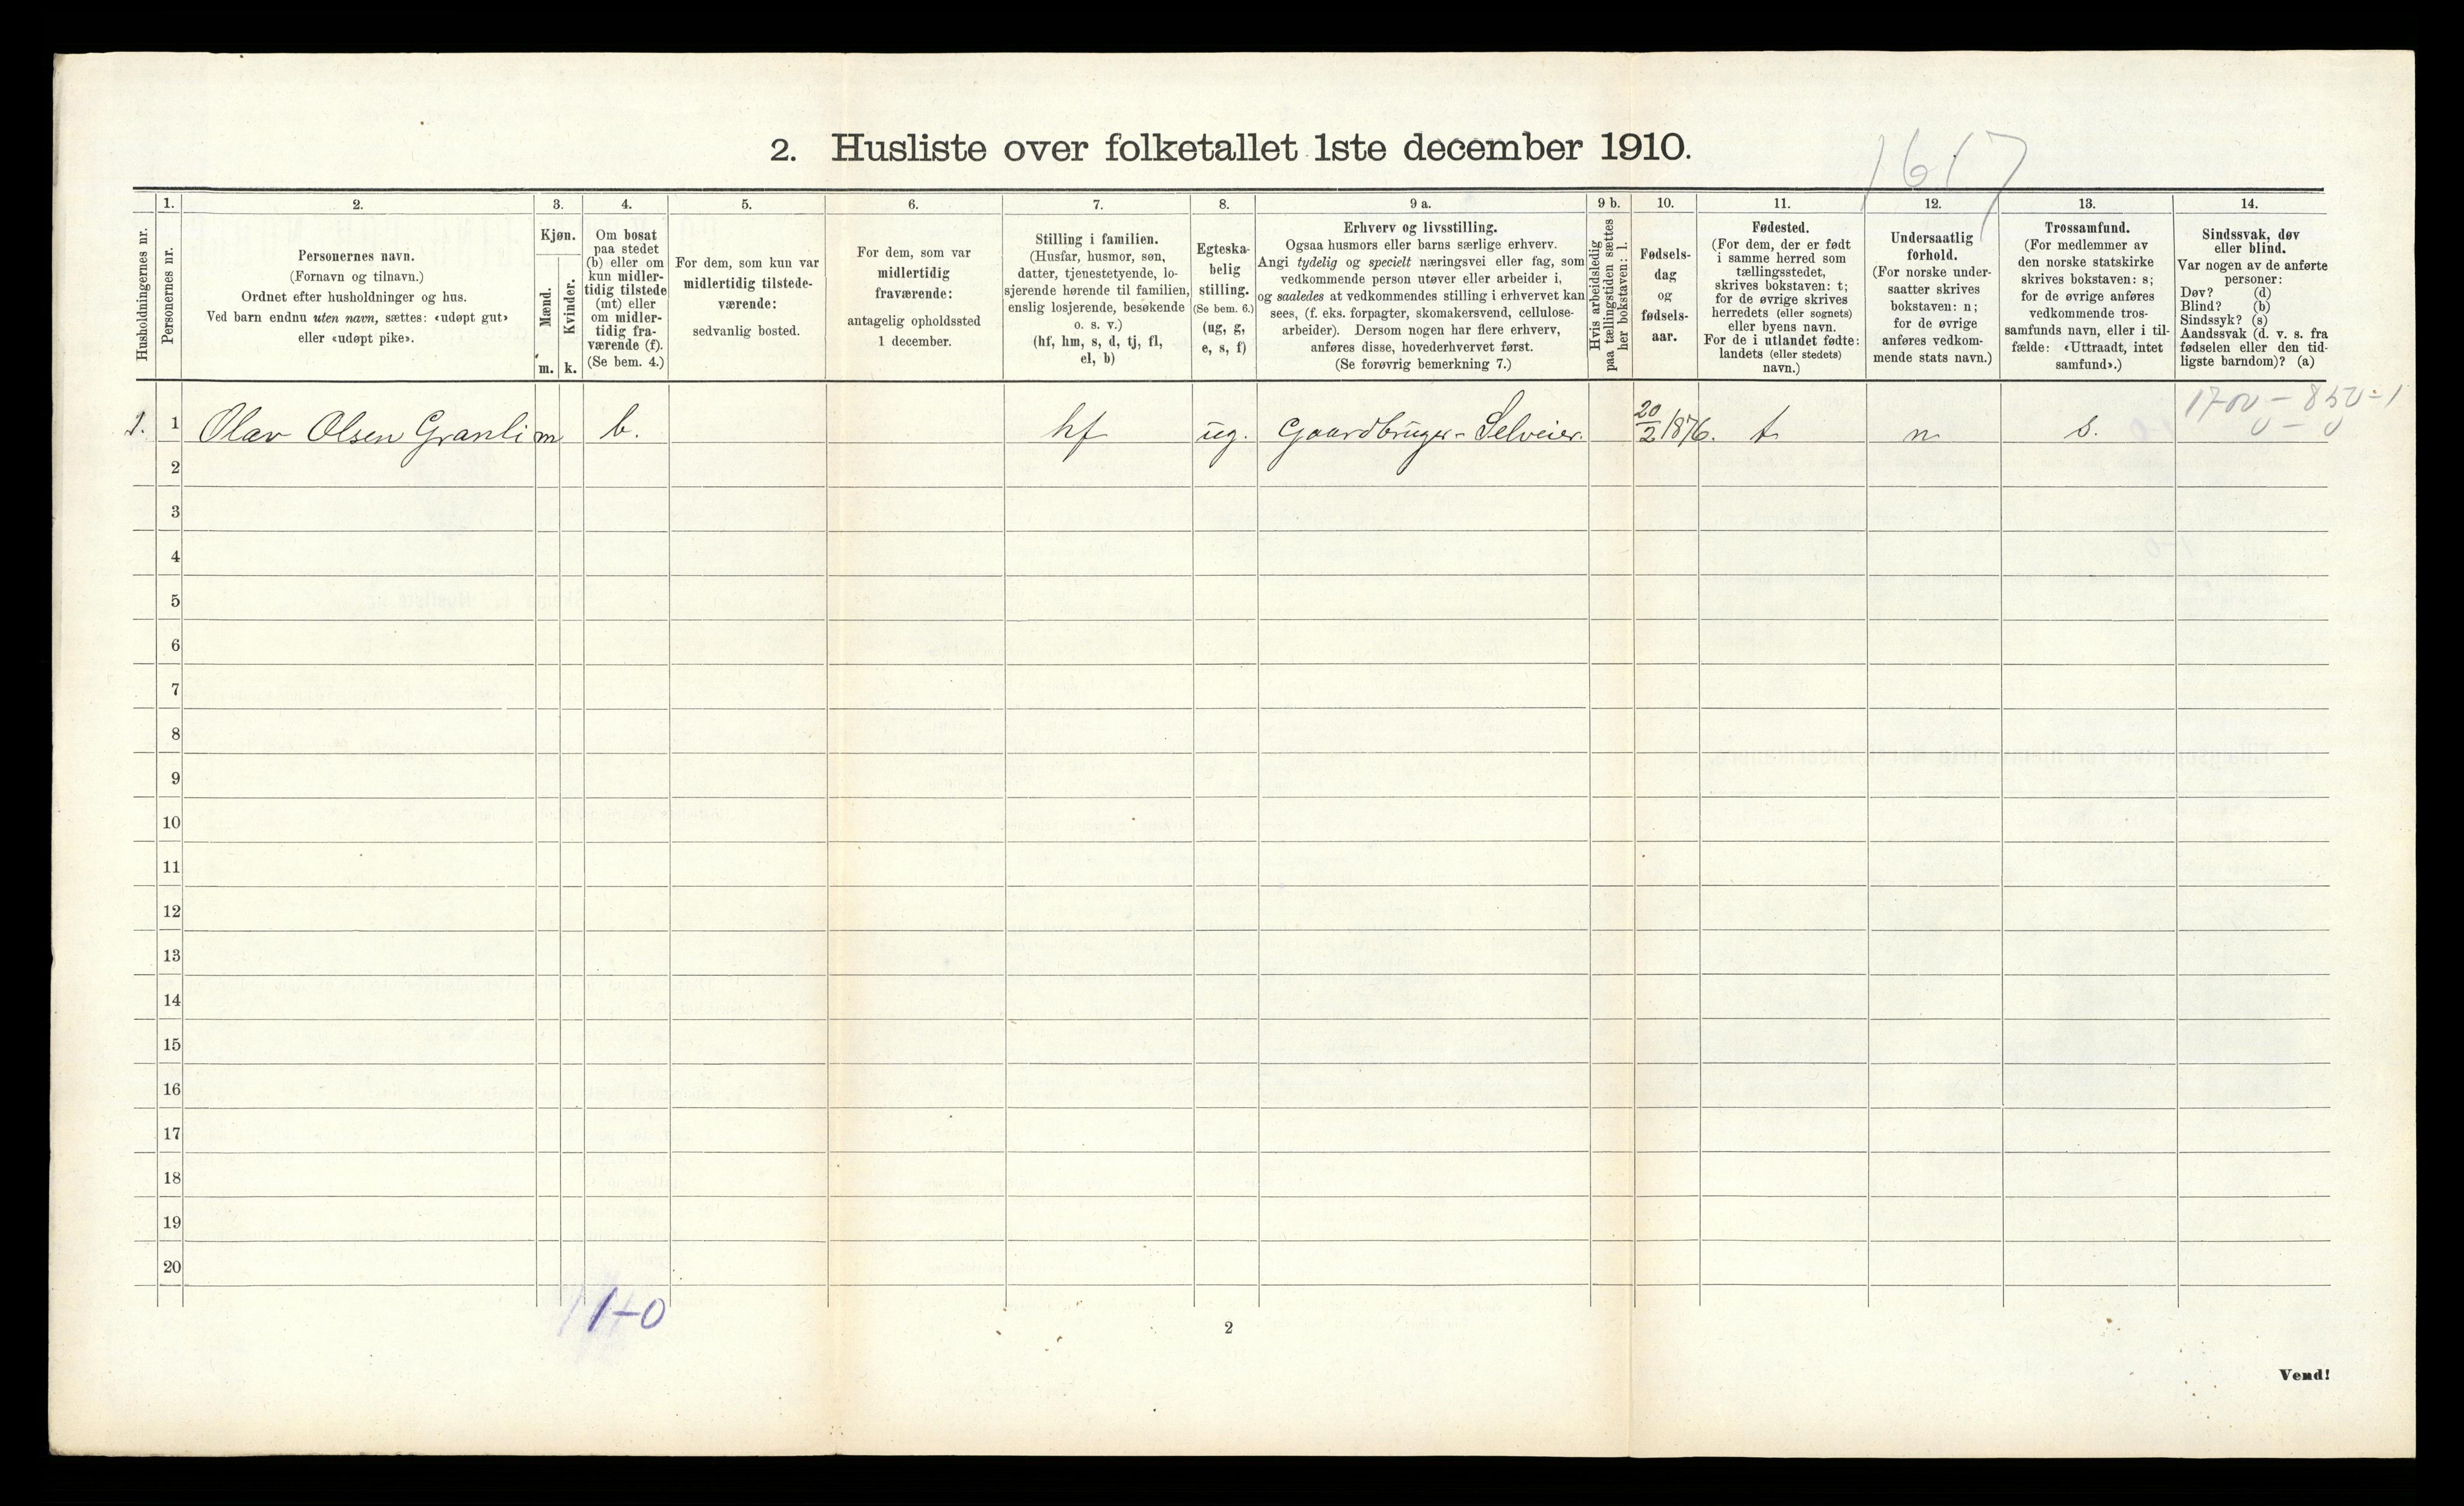 2. Husliste over folketallet 1ste december 1910.
1617
1.
2.
3.
4.
5.
6.
7.
8.
9 a.
9 b.
10.
11.
12.
13.
14.
Husholdningernes nr.
Personernes nr.
Personernes navn.
(Fornavn og tilnavn.)
Ordnet efter husholdninger og hus.
Ved barn endnu uten navn, sættes: «udøpt gut»
eller «udøpt pike».
Kjøn.
Mænd.
Kvinder.
m.
k.
Om bosat
paa stedet
(b) eller om
kun midler-
tidig tilstede
(mt) eller
om midler-
tidig fra-
værende (f).
(Se bem. 4.)
For dem, som kun var
midlertidig tilstede-
værende:
sedvanlig bosted.
For dem, som var
midlertidig
fraværende:
antagelig opholdssted
1 december.
Stilling i familien.
(Husfar, husmor, søn,
datter, tjenestetyende, lo-
sjerende hørende til familien,
enslig losjerende, besøkende
o. s. v.)
(hf, hm, s, d, tj, fl,
el, b)
Egteska-
belig
stilling.
(Se bem. 6.)
(ug, g,
e, s, f)
Erhverv og livsstilling.
Ogsaa husmors eller barns særlige erhverv.
Angi tydelig og specielt næringsvei eller fag, som
vedkommende person utøver eller arbeider i,
og saaledes at vedkommendes stilling i erhvervet kan
sees, (f. eks. forpagter, skomakersvend, cellulose-
arbeider). Dersom nogen har flere erhverv,
anføres disse, hovederhvervet først.
(Se forøvrig bemerkning 7.)
Hvis arbeidsledig
paa tællingstiden sættes
her bokstaven: l.
Fødsels-
dag
og
fødsels-
aar.
Fødested.
(For dem, der er født
i samme herred som
tællingsstedet,
skrives bokstaven: t;
for de øvrige skrives
herredets (eller sognets)
eller byens navn.
For de i utlandet fødte:
landets (eller stedets)
navn.)
Undersaatlig
forhold.
(For norske under-
saatter skrives
bokstaven: n;
for de øvrige
anføres vedkom-
mende stats navn.)
Trossamfund.
(For medlemmer av
den norske statskirke
skrives bokstaven: s;
for de øvrige anføres
vedkommende tros-
samfunds navn, eller i til-
fælde: «Uttraadt, intet
samfund».)
Sindssvak, døv
eller blind.
Var nogen av de anførte
personer:
Døv? (d)
Blind? (b)
Sindssyk? (s)
Aandssvak (d. v. s. fra
fødselen eller den tid-
ligste barndom)? (a)
1700 - 850 = 1
0 - 0
1. 1 Olav Olsen Granli m b. hf ug. Gaardbruger - Selveier. 20/2 1876. t n s.
2
3
4
5
6
7
8
9
10
11
12
13
14
15
16
17
18
19
20
1-0
2
Vend!